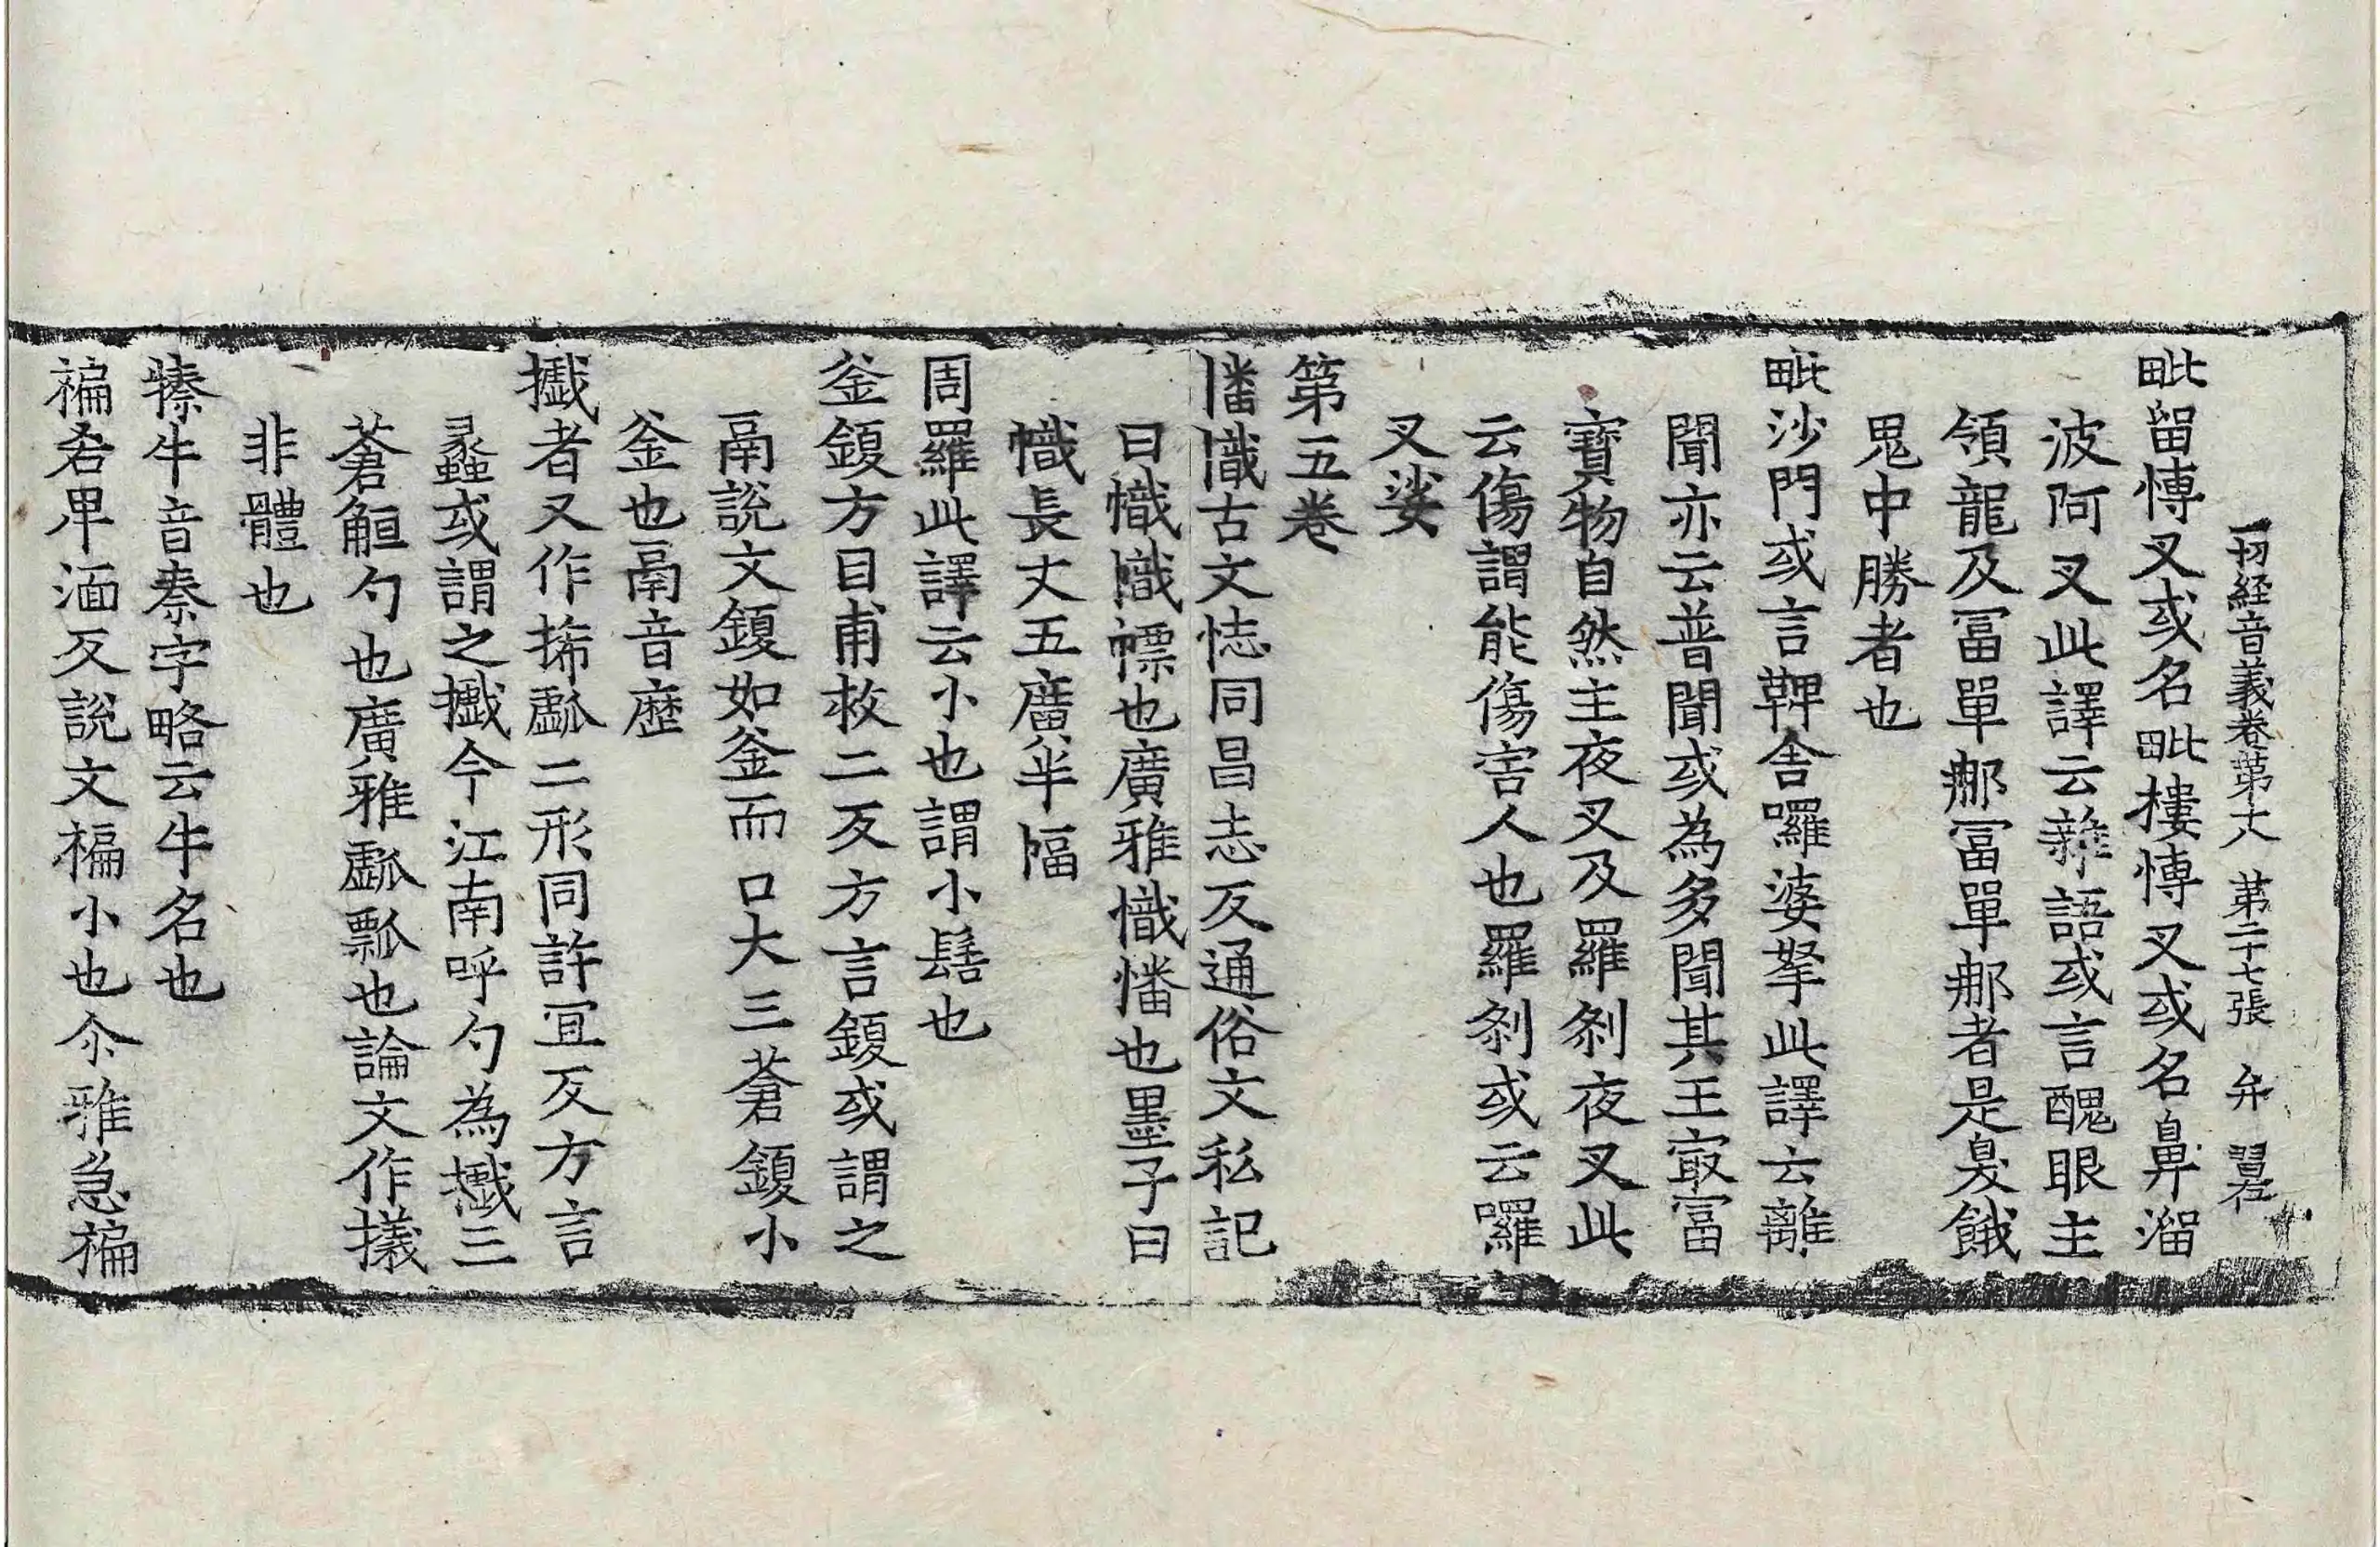 一切經音義卷第十八 第二十七張 弁
毗留愽叉或名毗樓愽叉或名鼻溜
波阿叉此譯云雜語或言醜眼主
領龍及冨單𨚗冨單𨚗者是臭餓
鬼中勝者也
毗沙門或言鞞舍囉婆拏此譯云離
聞亦云普聞或為多聞其王㝡冨
寶物自然主夜叉及羅剎夜叉此
云傷謂能傷害人也羅剎或云囉
叉娑
第五卷
憣幟古文恄同昌志反通俗文私記
曰幟幟幖也廣雅幟憣也墨子曰
幟長丈五廣半幅
周羅此譯云小也謂小髻也
釜鍑方目甫救二反方言鍑或謂之
鬲說文鍑如釜而口大三蒼鍑小
釜也鬲音歷
㩘者又作㧊𤬛二形同許冝反方言
蠡或謂之㩘今江南呼勺為㩘三
蒼㼝勺也廣雅𤬛瓢也論文作㩘
非體也
㮈牛音秦字略云牛名也
褊㕁卑湎反說文褊小也尒雅急褊